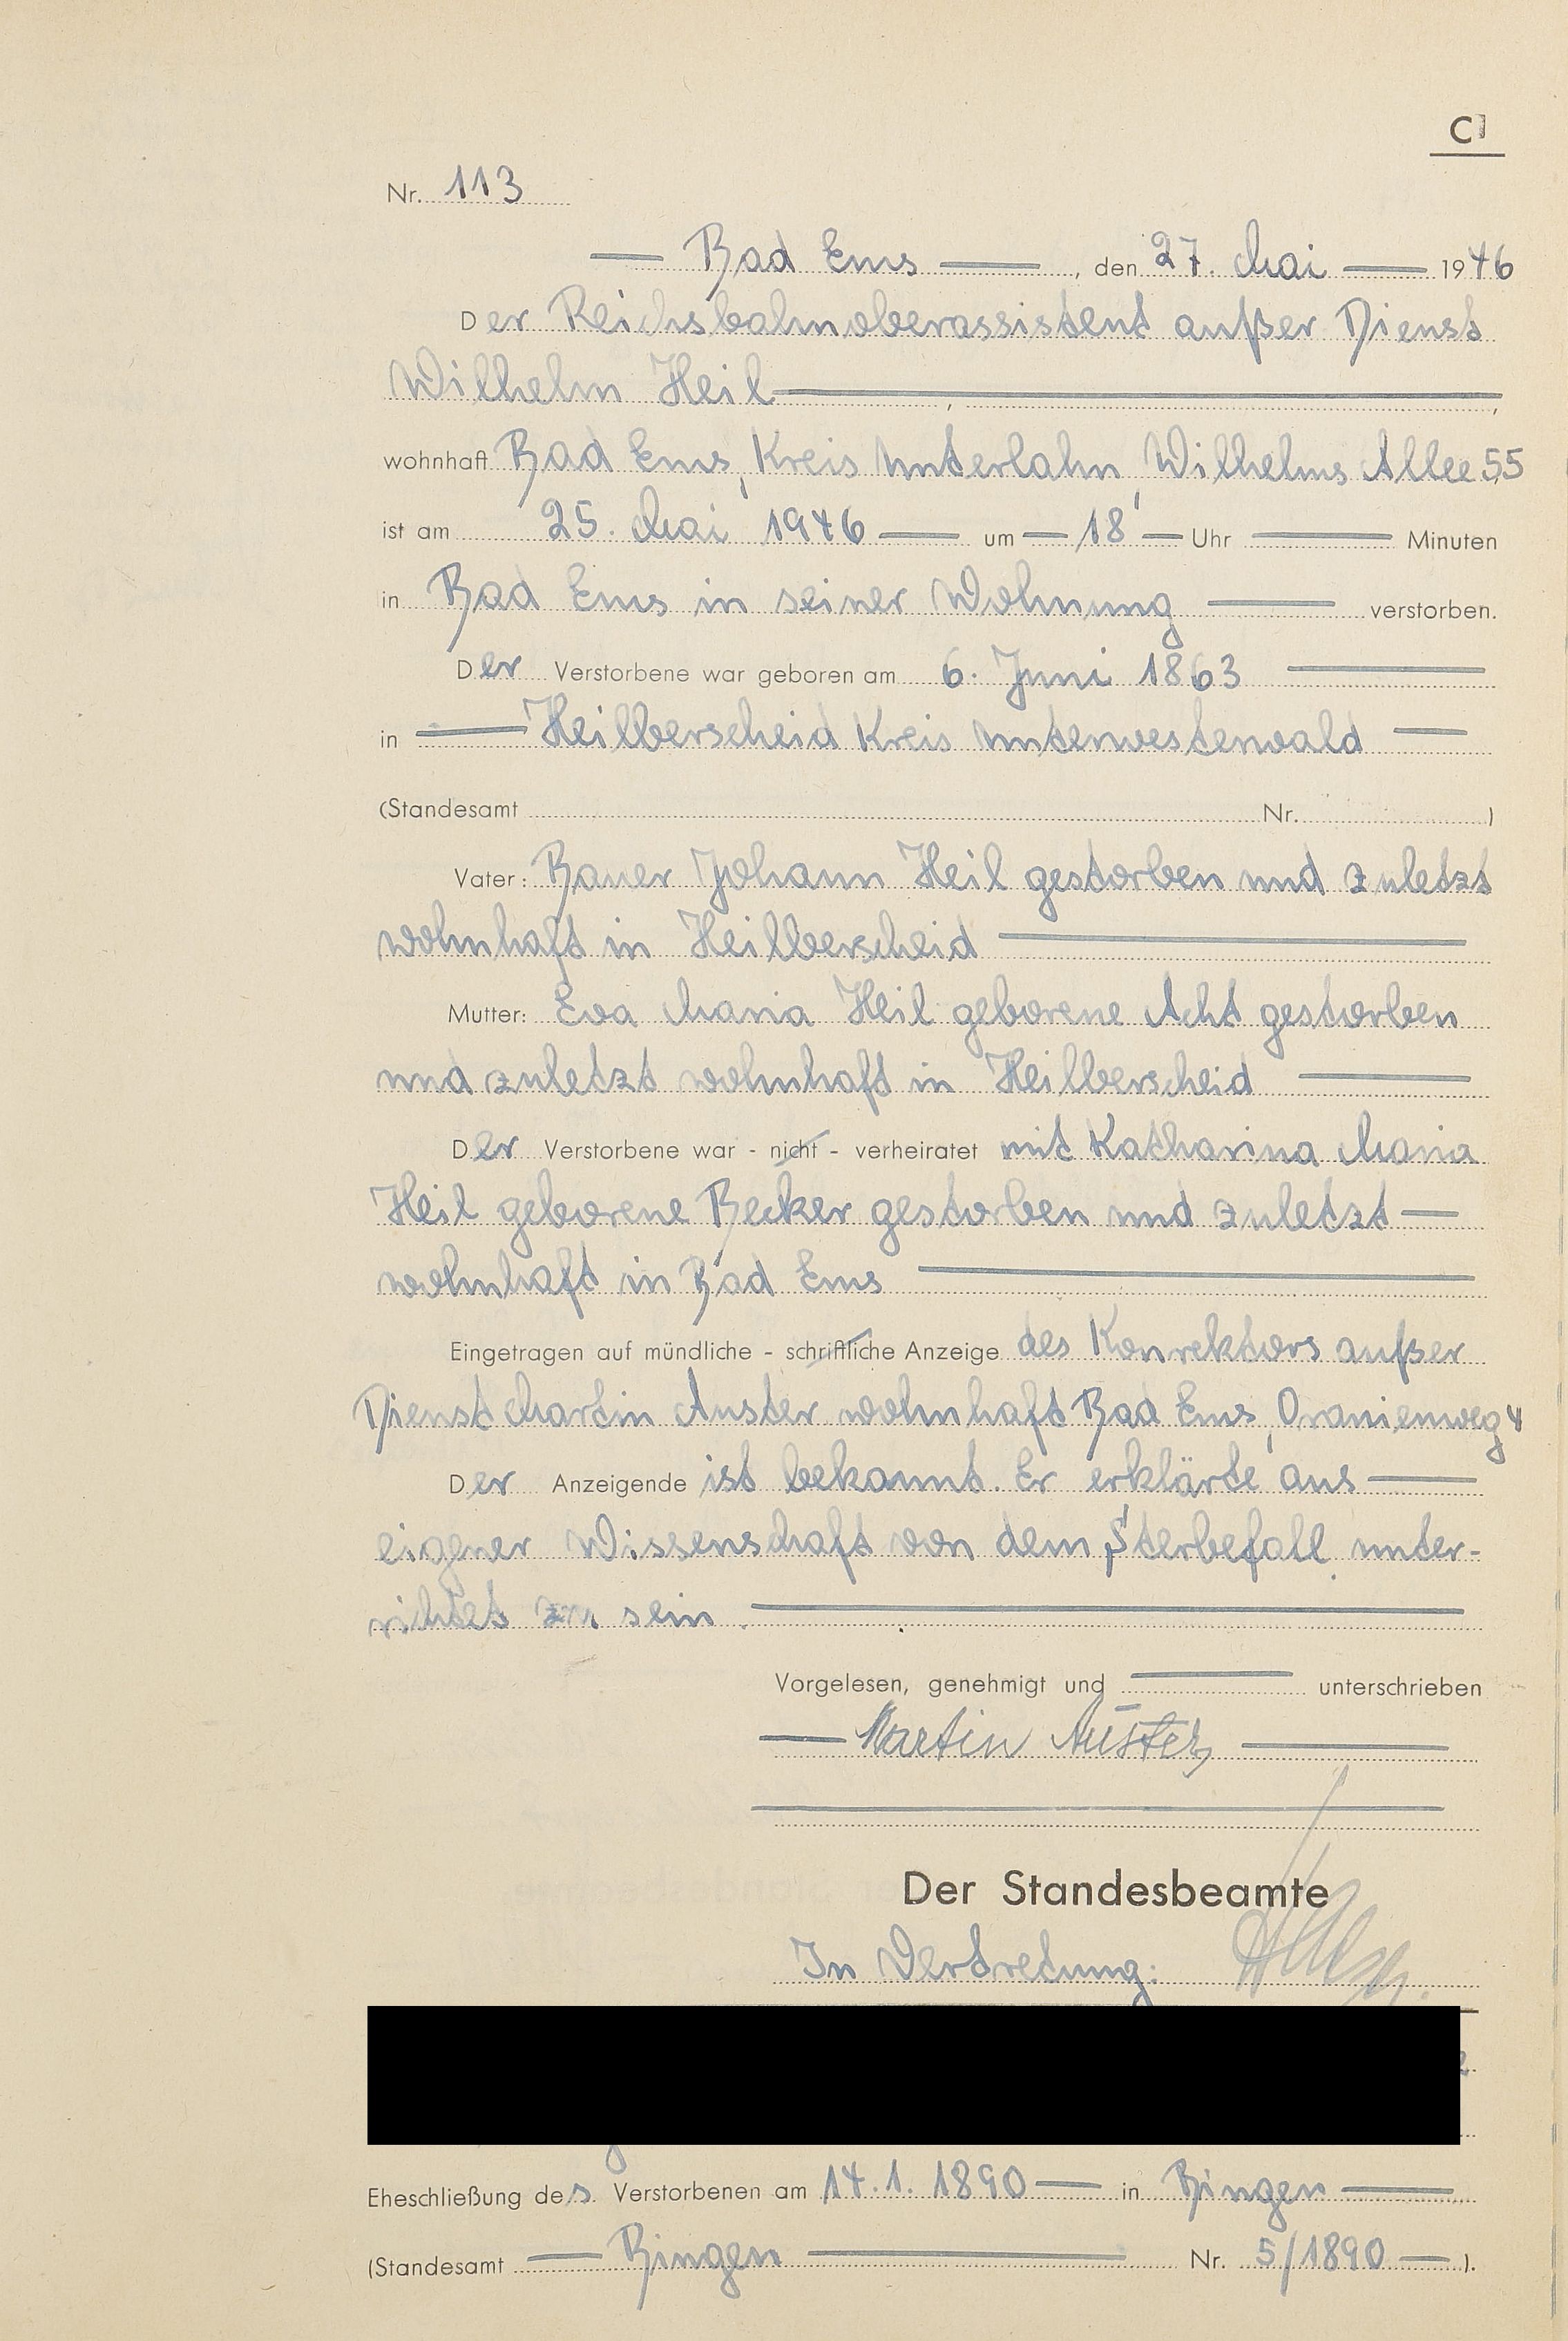 C
Nr. 113
Bad Ems, den 27. Mai 1946
Der Reichsbahnoberassistent außer Dienst
Wilhelm Heil
wohnhaft Bad Ems, Kreis Unterlahn, Wilhelms Allee 55
ist am 25. Mai 1946 um 18 Uhr Minuten
in Bad Ems in seiner Wohnung verstorben.
Der Verstorbene war geboren am 6. Juni 1863
in Heilberscheid Kreis Unterwesterwald
(Standesamt Nr. )
Vater: Bauer Johann Heil gestorben und zuletzt
wohnhaft in Heilberscheid
Mutter: Eva Maria Heil geborene Acht gestorben
und zuletzt wohnhaft in Heilberscheid
Der Verstorbene war - nicht - verheiratet mit Katharina Maria
Heil geborene Becker gestorben und zuletzt
wohnhaft in Bad Ems
Eingetragen auf mündliche - schriftliche Anzeige des Konrektors außer
Dienst Martin Auster wohnhaft Bad Ems, Oranienweg 4
Der Anzeigende ist bekannt. Er erklärte aus
eigener Wissenschaft von dem Sterbefall unter-
richtet zu sein.
Vorgelesen, genehmigt und unterschrieben
Martin Auster
Der Standesbeamte
In Vertretung:
Eheschließung des Verstorbenen am 14.1.1890 in Bingen
(Standesamt Bingen Nr. 5/1890 ).